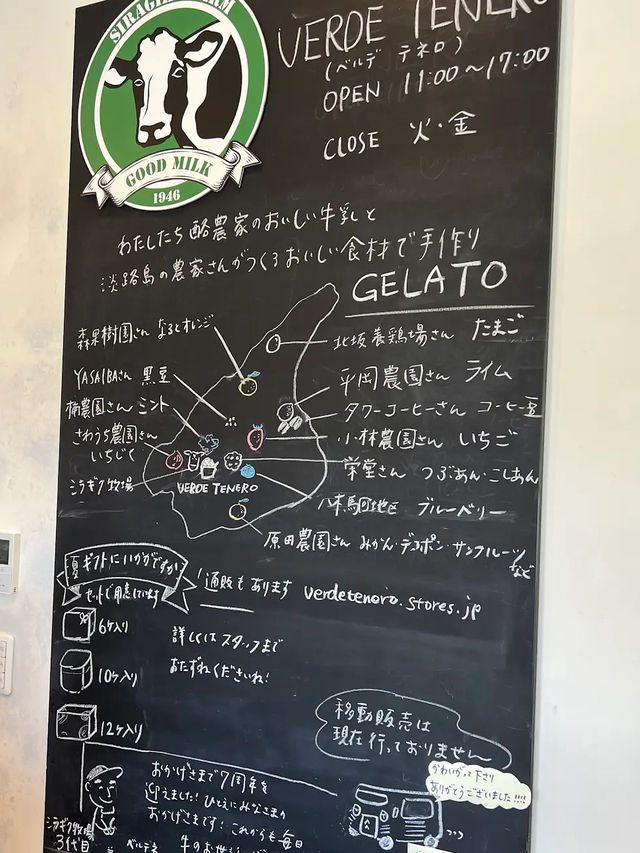 SIRAGIKU FARM
GOOD MILK
1946
VERDE TENERO
(ベルデ テネロ)
OPEN 11:00〜17:00
CLOSE 火・金
わたしたち酪農家のおいしい牛乳と
淡路島の農家さんがつくるおいしい食材で手作り
GELATO
森果樹園さん なるとオレンジ
YASAIBAさん 黒豆
楠農園さん ミント
さわうち農園さん
いちじく
シラギク牧場
VERDE TENERO
北坂養鶏場さん たまご
平岡農園さん ライム
タワーコーヒーさん コーヒー豆
小林農園さん いちご
栄堂さん つぶあん・こしあん
八木馬回地区 ブルーベリー
原田農園さん みかん・デコポン・サンフルーツ
など
夏ギフトにいかがですか
セットで用意しています
通販もあります verdetenero.stores.jp
6ケ入り
10ケ入り
12ケ入り
詳しくはスタッフまで
おたずねくださいね!
移動販売は
現在行っておりません
かわいがって下さり
ありがとうございました!!!!
おかげさまで7周年を
迎えました! ひとえにみなさまの
おかげさまです! これからも毎日
シラギク牧場
3代目
ベルデテネ